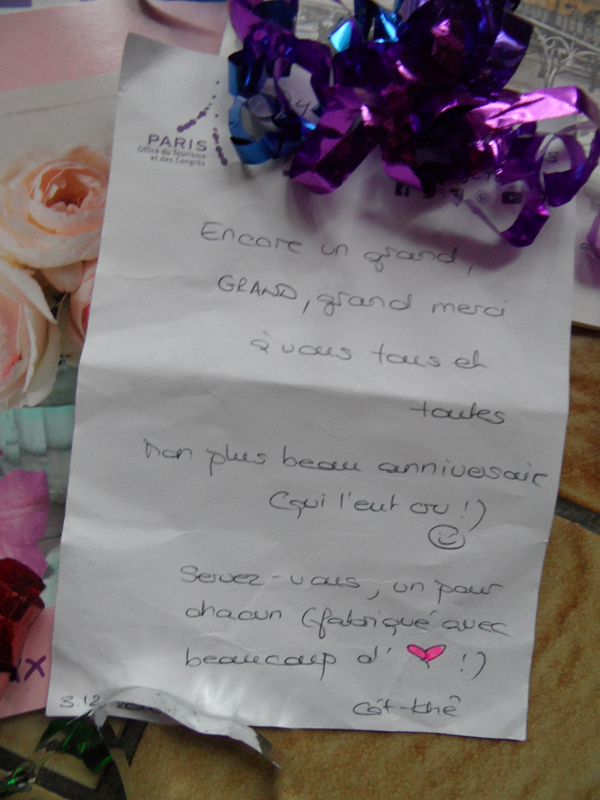 PARIS
Office du Tourisme
et des Congrès
Encore un grand,
GRAND, grand merci
à vous tous et
toutes
Mon plus beau anniversaire
(qui l'eut cru !)
Servez-vous, un pour
chacun (fabriqué avec
beaucoup d' !)
3.12
Cát-Khê